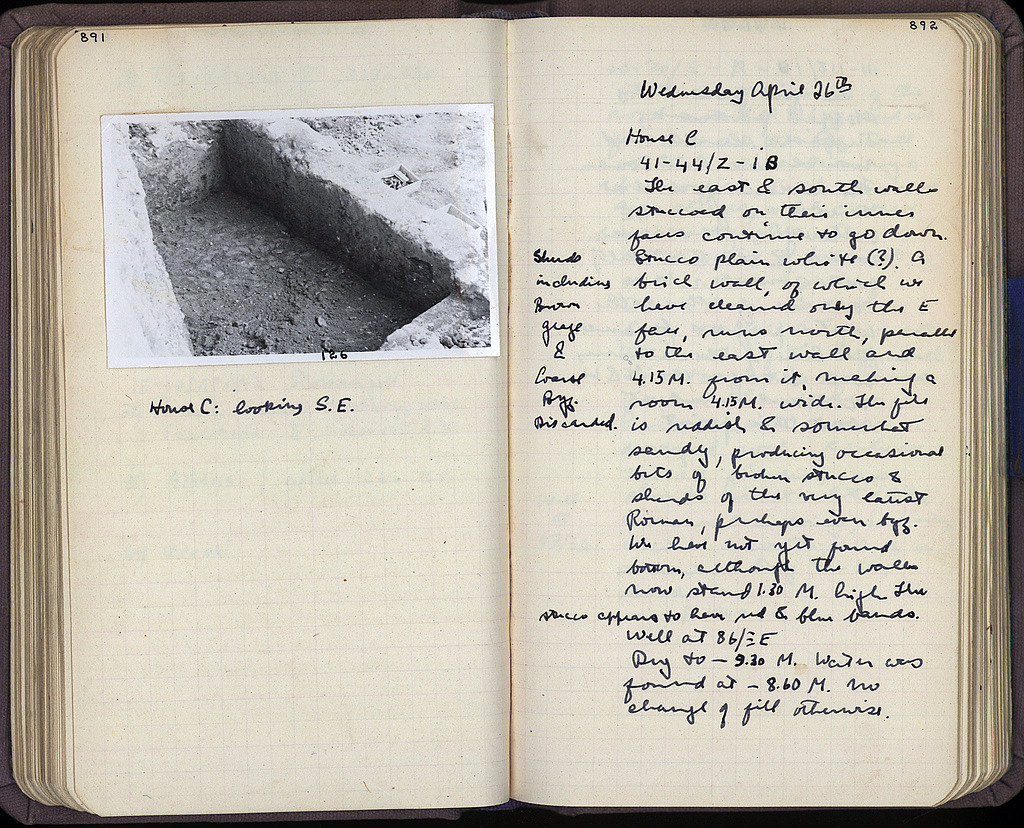 891
126
House C: looking S.E.
892
Wednesday April 26th
House C
41-44/Z-IB
The east & south walls
stuccoed on their inner
faces continue to go down.
Stucco plain white (?). A
brick wall, of which we
have cleared only the E
face, runs north, parallel
to the east wall and
4.15 M. from it, making a
room 4.15 M. wide. The fill
is reddish & somewhat
sandy, producing occasional
bits of broken stucco &
sherds of the very latest
Roman, perhaps even byz.
We have not yet found
bottom, although the walls
now stand 1.30 M. high. The
stucco appears to have red & blue bands.
Sherds
including
Brown
glaze
&
Coarse
Byz.
Discarded.
Well at 86/ΞE
Dug to - 9.30 M. Water was
found at - 8.60 M. No
change of fill otherwise.